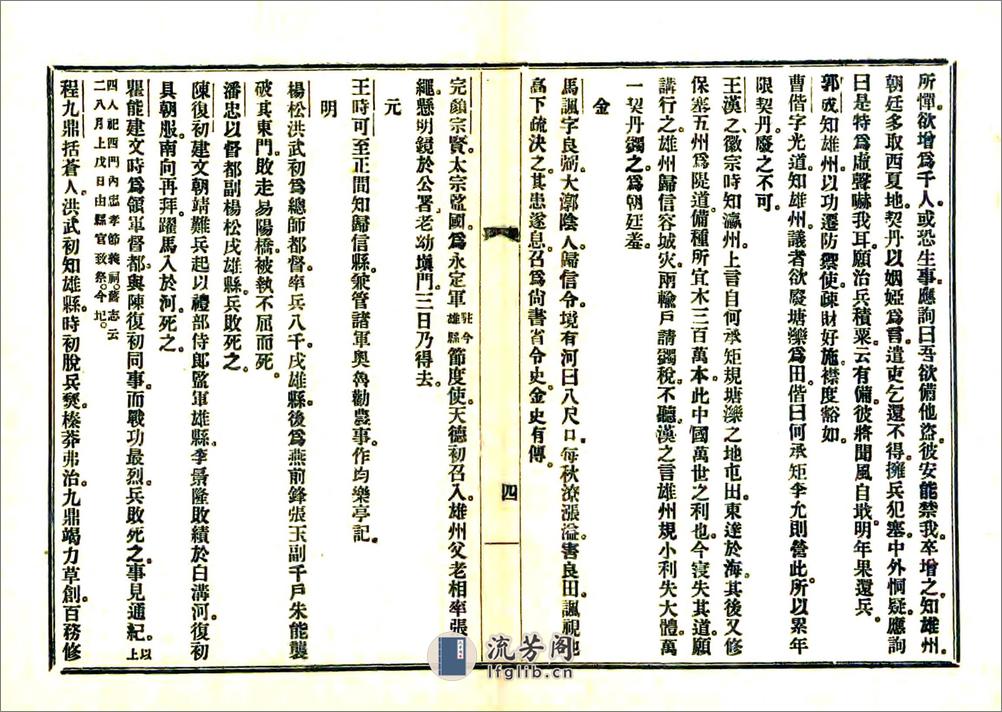 所憚欲增爲千人或恐生事應詢曰吾欲備他盜彼安能禁我卒增之知雄州
朝廷多取西夏地契丹以姻婭爲言遣吏乞還不得擁兵犯塞中外恫疑應詢
曰是特爲虛聲嚇我耳願治兵積粟云有備彼將聞風自戢明年果還兵
郭成知雄州以功遷防禦使疎財好施襟度豁如
曹偕字光道知雄州議者欲廢塘濼爲田偕曰何承矩李允則營此所以累年
限契丹廢之不可
王漢之徽宗時知瀛州上言自何承矩規塘濼之地屯田東達於海其後又修
保塞五州爲隄道備種所宜木三百萬本此中國萬世之利也今寖失其道願
講行之雄州歸信容城災兩輸戶請蠲稅不聽漢之言雄州規小利失大體萬
一契丹蠲之爲朝廷羞
金
馬諷字良弼大漷陰人歸信令境有河曰八尺口每秋潦漲溢害良田諷視地
高下疏決之其患遂息召爲尚書省令史金史有傳
四
完顏宗賢太宗監國爲永定軍駐今雄縣節度使天德初召入雄州父老相率張
繩懸明鏡於公署老幼塡門三日乃得去
元
王時可至正間知歸信縣兼管諸軍奥魯勸農事作均樂亭記
明
楊松洪武初爲總師都督率兵八千戍雄縣後爲燕前鋒張玉副千戶朱能襲
破其東門敗走易陽橋被執不屈而死
潘忠以督都副楊松戍雄縣兵敗死之
陳復初建文朝靖難兵起以禮部侍郎監軍雄縣李景隆敗績於白溝河復初
具朝服南向再拜躍馬入於河死之
羆能建文時爲領軍督都與陳復初同事而戰功最烈兵敗死之事見通紀以上
四人祀四門內忠孝節義祠舊志云
二八月上戊日由縣官致祭今圮
程九鼎括蒼人洪武初知雄縣時初脫兵燹榛莽弗治九鼎竭力草創百務修
流芳阁
lfglib.cn